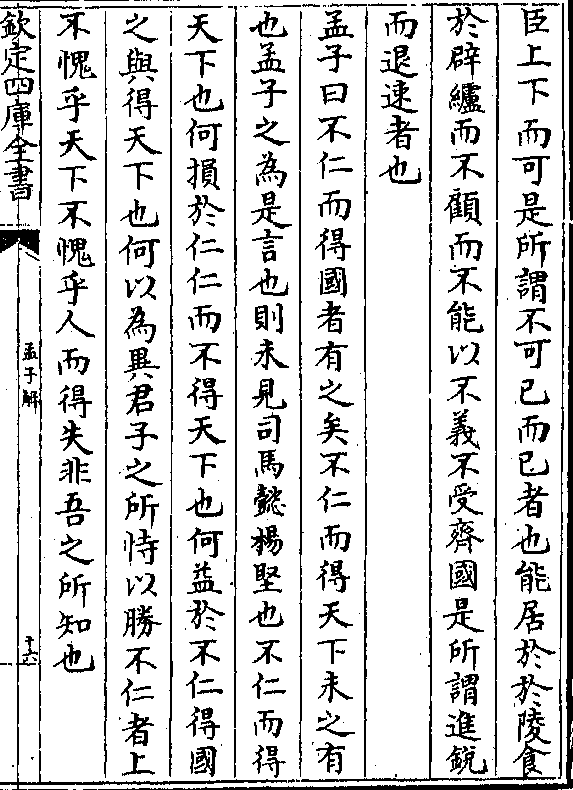 臣上下而可是所謂不可已而已者也能居於於陵食
於辟纑而不顧而不能以不義不受齊國是所謂進銳
而退速者也
孟子曰不仁而得國者有之矣不仁而得天下未之有
也孟子之為是言也則未見司馬懿楊堅也不仁而得
天下也何損於仁仁而不得天下也何益於不仁得國
之與得天下也何以為異君子之所恃以勝不仁者上
不愧乎天下不愧乎人而得失非吾之所知也
欽定四庫全書
孟子解
十六